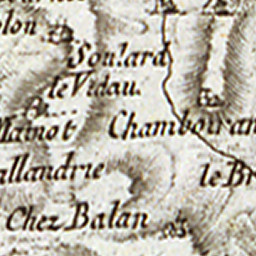 olon
Soulard
le Vidau.
Mainot
Chambouran
allandrie
le Br
Chez Balan